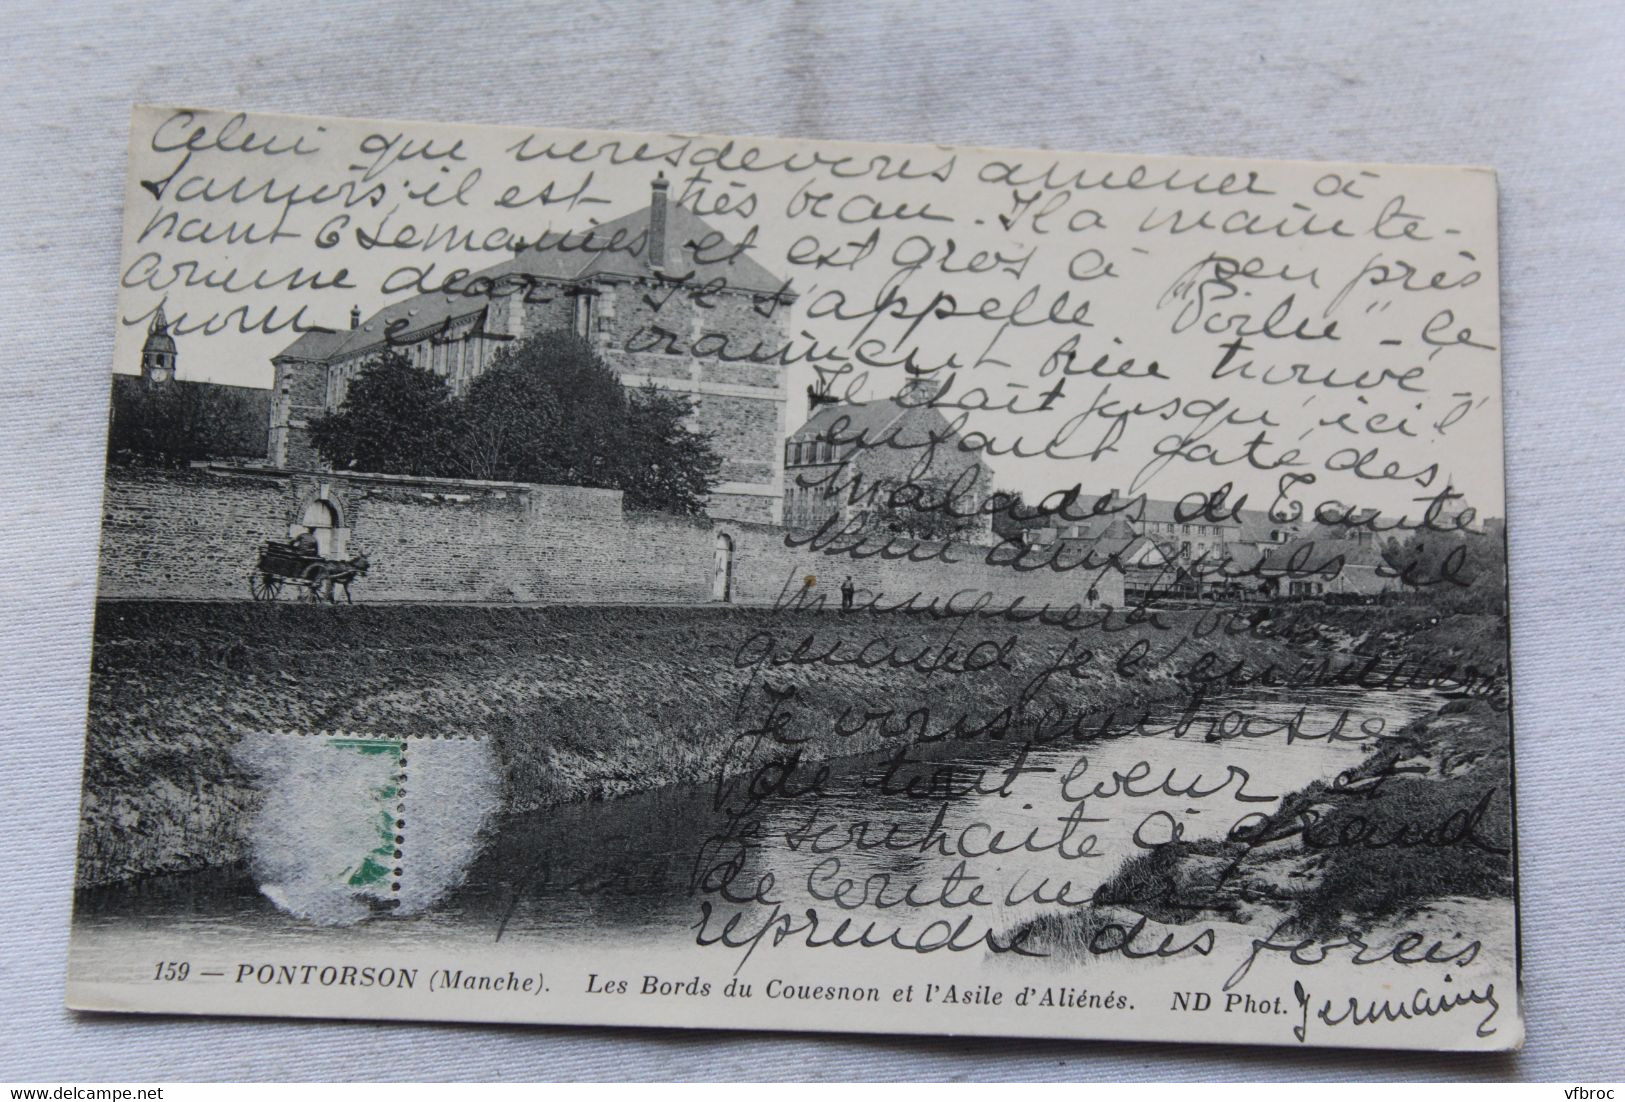 Celui que nous devons amener à
Samois; il est très beau. Il a mainte-
nant 6 semaines et est gros à peu près
comme deax - Il s'appelle "Poilu" - le
nom est vraiment bien trouvé.
Il était jusqu'ici l'
enfant gaté des
Malades de Tante
Nini aux quels il
manquera bien
quand je l'emmènerai
Je vous embrasse
de tout coeur et
Je souhaite à grand
père de continuer à
reprendre des forces
Germaine
159 — PONTORSON (Manche). Les Bords du Couesnon et l'Asile d'Aliénés. ND Phot.
vfbroc